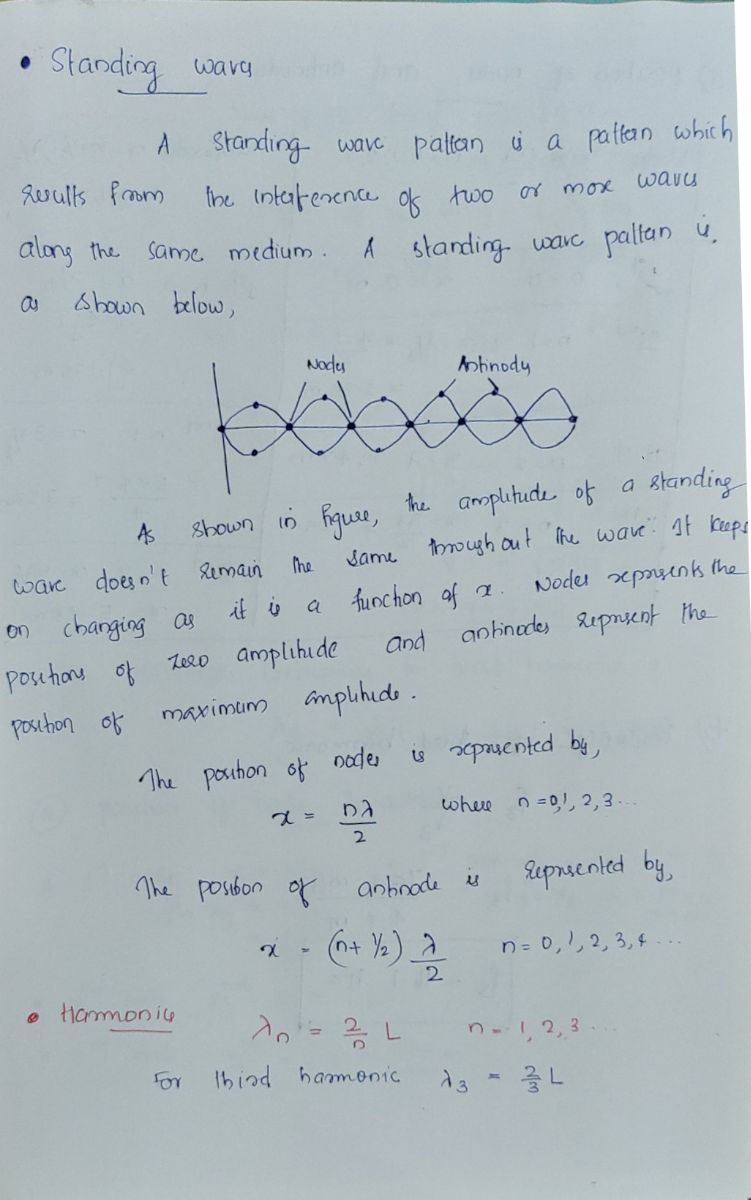 • Standing waves
A standing wave pattern is a pattern which
results from the interference of two or more waves
along the same medium. A standing wave pattern is
as shown below,
Nodes Antinodes
As shown in figure, the amplitude of a standing
wave doesn't remain the same throughout the wave. It keeps
on changing as it is a function of x. Nodes represents the
positions of zero amplitude and antinodes represent the
position of maximum amplitude.
The position of nodes is represented by,
x = nλ/2 where n = 0, 1, 2, 3...
The position of antinode is represented by,
x = (n + 1/2) λ/2 n = 0, 1, 2, 3, 4 ...
• Harmonics λn = 2/n L n = 1, 2, 3 ...
For third harmonic λ3 = 2/3 L